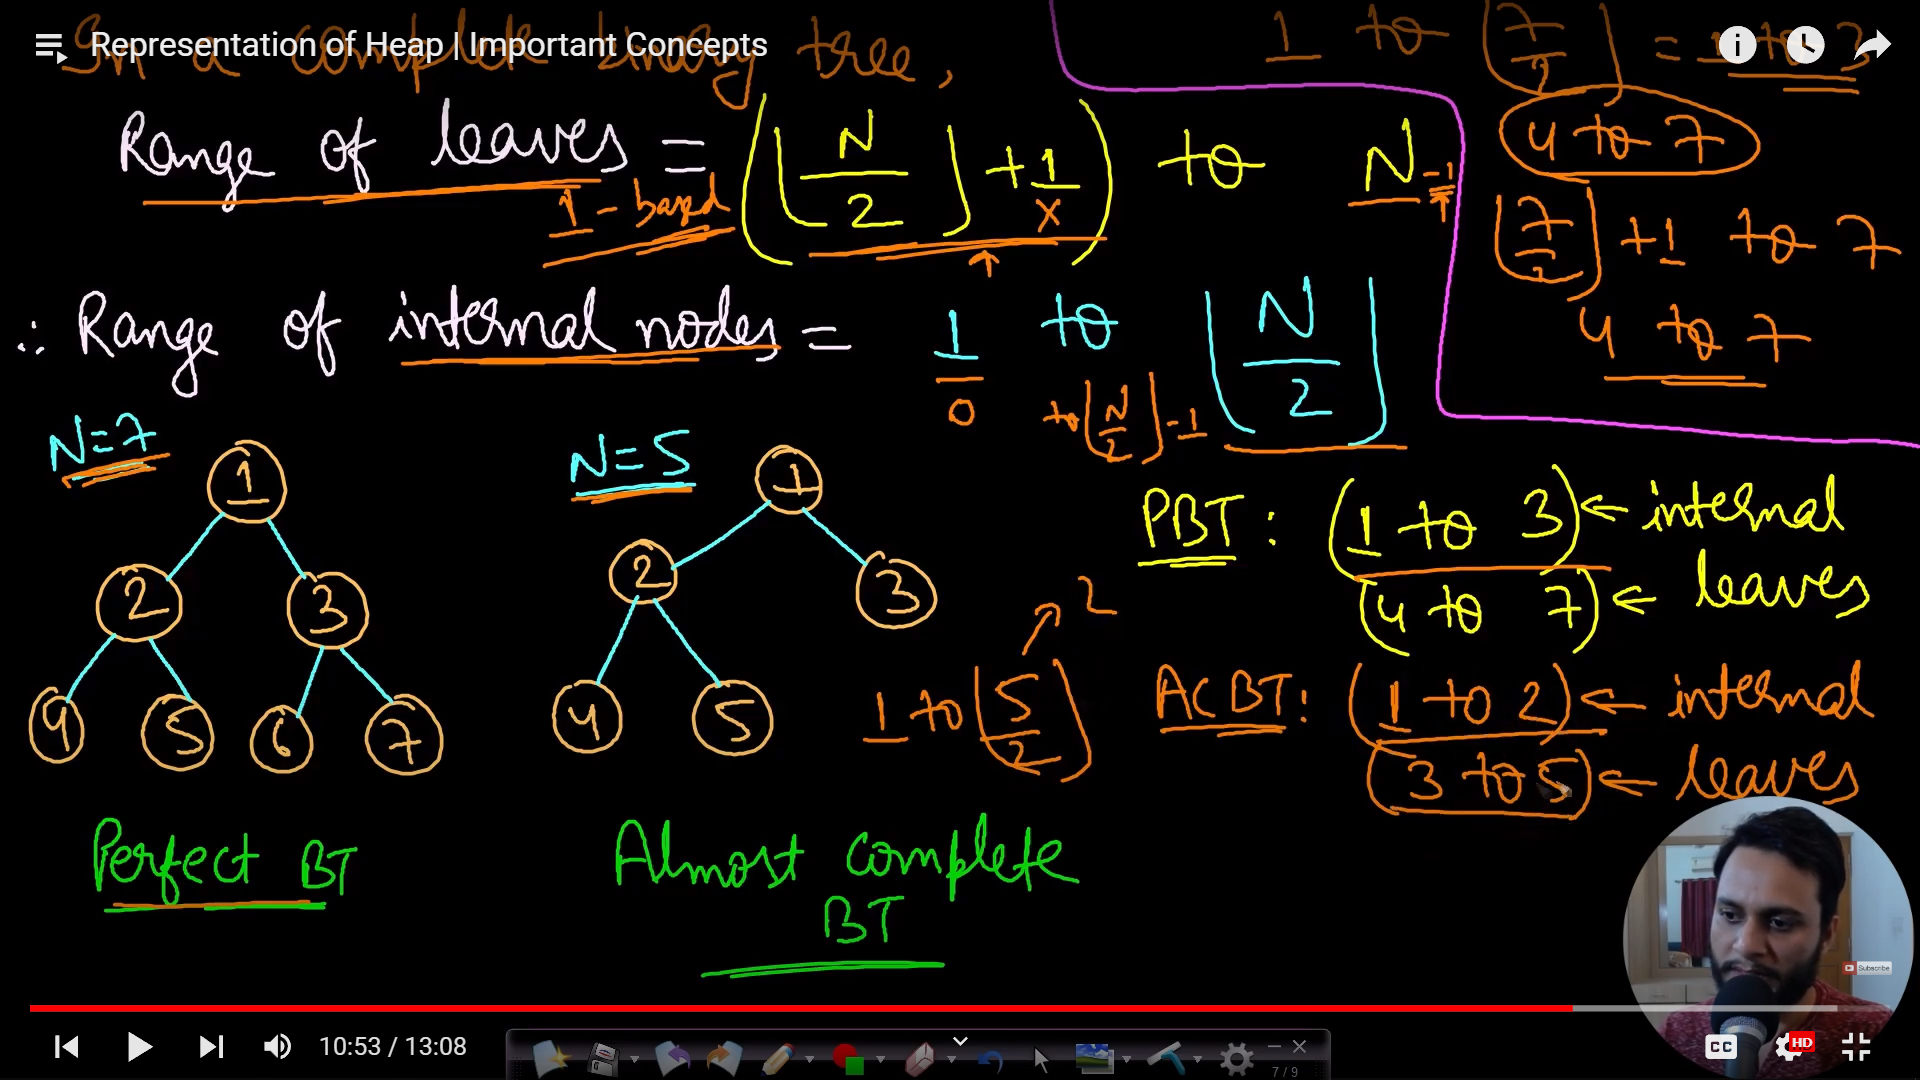 Representation of Heap | Important Concepts
In a complete binary tree,
Range of leaves = (⌊N/2⌋ + 1) to N - 1
1 - based
x
∴ Range of internal nodes = 1 to ⌊N/2⌋
0 to ⌊N/2⌋ - 1
1 to ⌊7/2⌋ = 1 to 3
4 to 7
⌊7/2⌋ + 1 to 7
4 to 7
N = 7
1
2
3
4
5
6
7
Perfect BT
N = 5
1
2
3
4
5
Almost complete
BT
1 to ⌊5/2⌋
2
PBT : (1 to 3) ← internal
(4 to 7) ← leaves
ACBT : (1 to 2) ← internal
(3 to 5) ← leaves
Subscribe
10:53 / 13:08
7 / 9
CC
HD